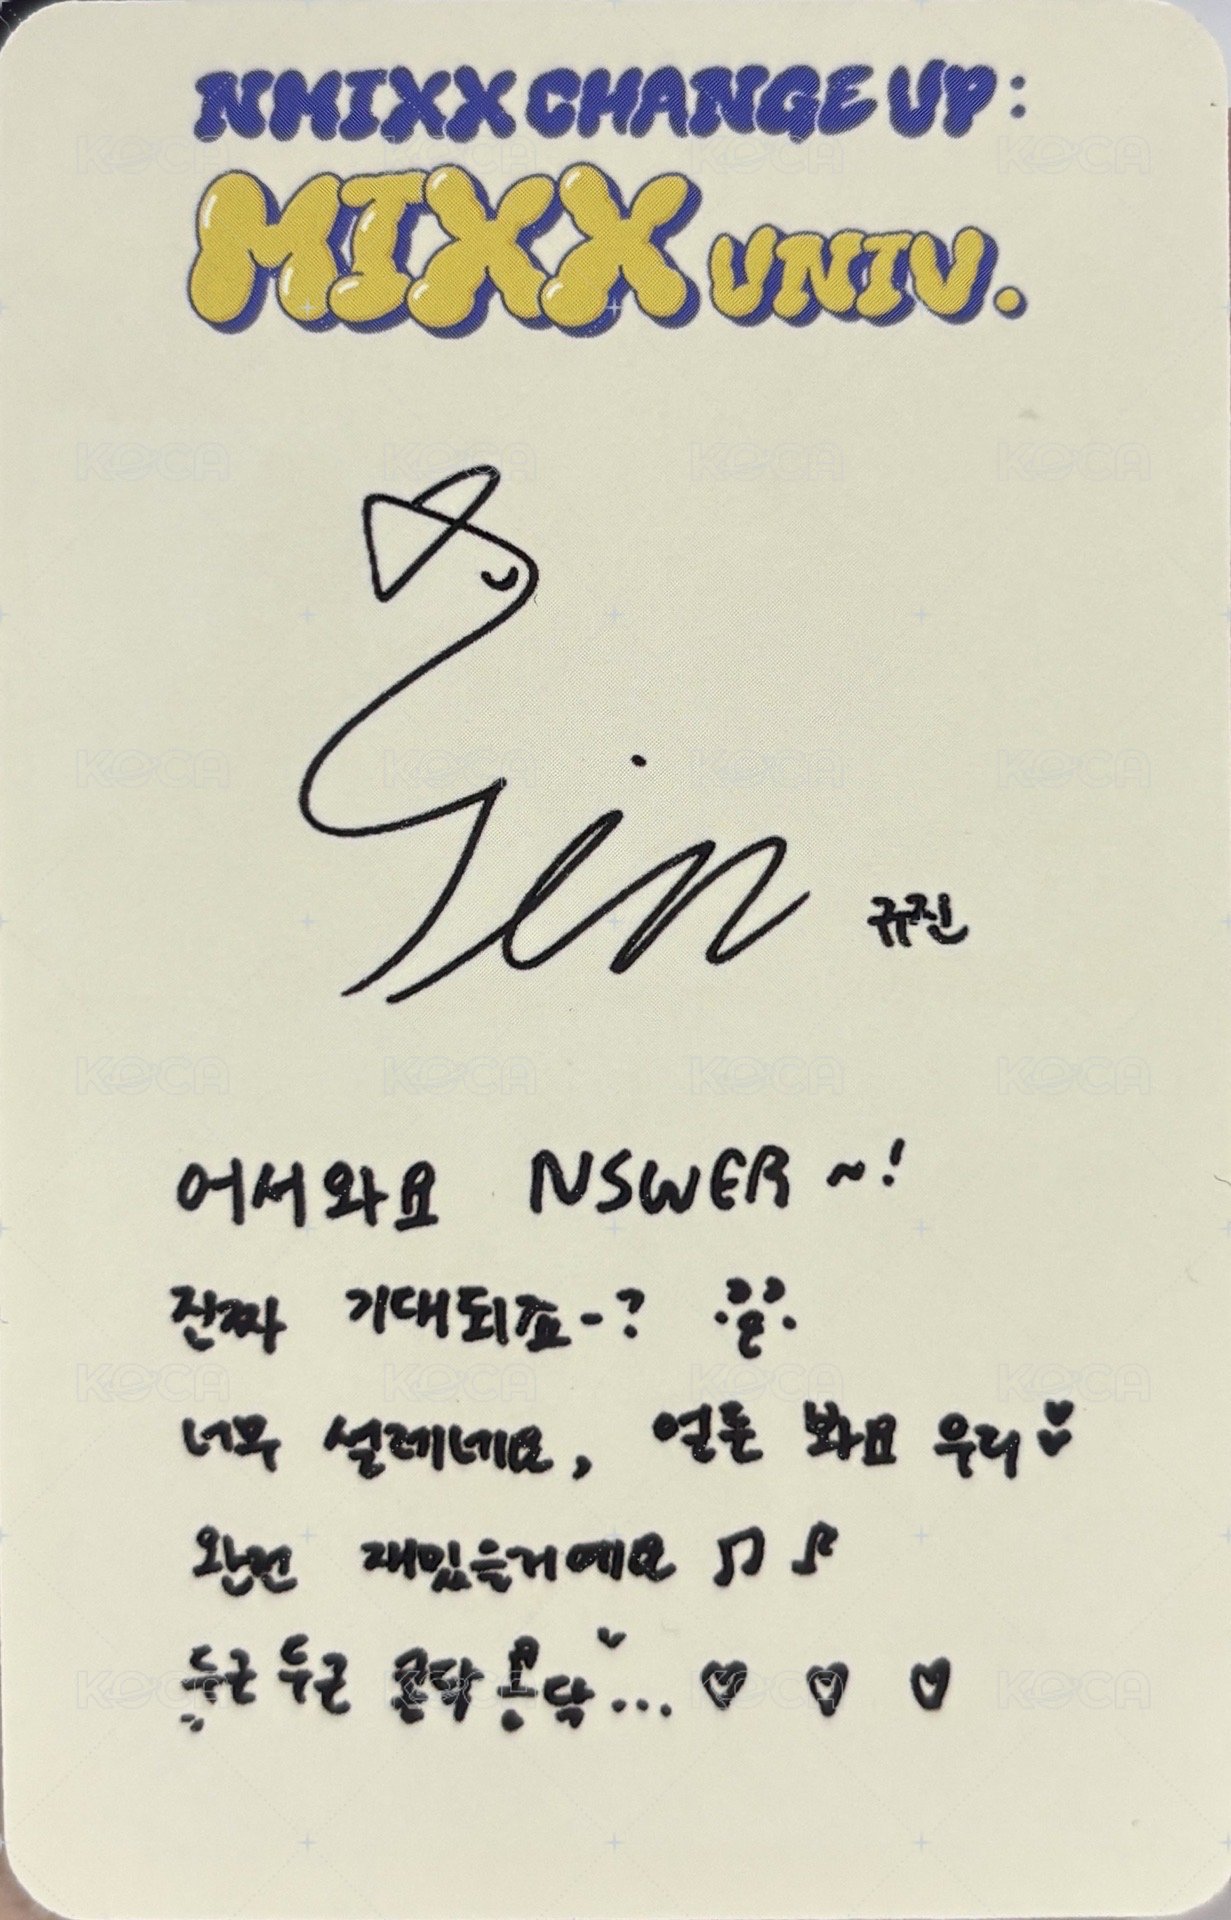 NMIXX CHANGE UP:
MIXX UNIV.
Jin 규진
어서와요 NSWER ~!
진짜 기대되죠-?
너무 설레네요, 얼른 봐요 우리
완전 재밌을거예요 ♫ ♪
두근두근 콩닥콩닥... ♡ ♡ ♡
KOCA